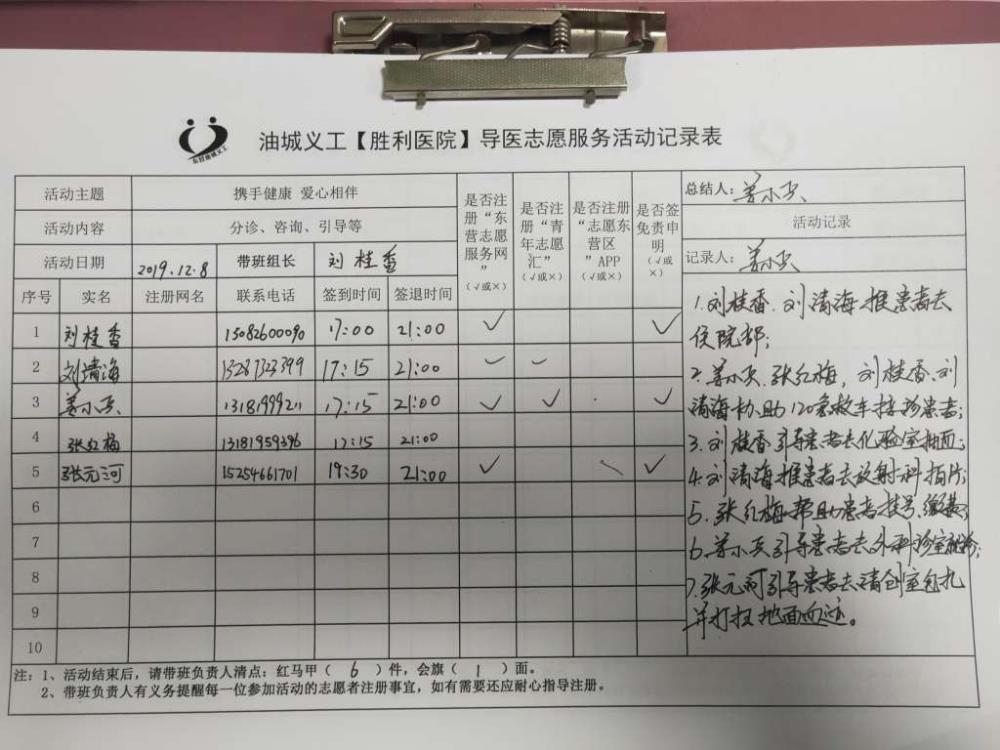 油城义工【胜利医院】导医志愿服务活动记录表
活动主题 携手健康 爱心相伴
活动内容 分诊、咨询、引导等
活动日期 2019.12.8 带班组长 刘桂香
序号 实名 注册网名 联系电话 签到时间 签退时间 是否注册“东营志愿服务网”(√或×) 是否注册“青年志愿汇”(√或×) 是否注册“志愿东营区”APP(√或×) 是否签免责申明(√或×)
1 刘桂香 15082600090 17:00 21:00 √ √
2 刘清海 13287323399 17:15 21:00
3 姜小兵 13181999211 17:15 21:00 √ √ √
4 张红梅 13181959396 17:15 21:00
5 张元河 15254661701 19:30 21:00 √ √
6
7
8
9
10
总结人：姜小兵
活动记录
记录人：姜小兵
1.刘桂香、刘清海推患者去
住院部；
2.姜小兵、张红梅，刘桂香、刘
清海协助120急救车接诊患者；
3.刘桂香引导患者去化验室抽血；
4.刘清海推患者去放射科拍片；
5、张红梅帮助患者挂号、缴费；
6.姜小兵引导患者去外科诊室就诊；
7.张元河引导患者去清创室包扎
并打扫地面血迹。
注：1、活动结束后，请带班负责人清点：红马甲（ 6 ）件，会旗（ 1 ）面。
2、带班负责人有义务提醒每一位参加活动的志愿者注册事宜，如有需要还应耐心指导注册。